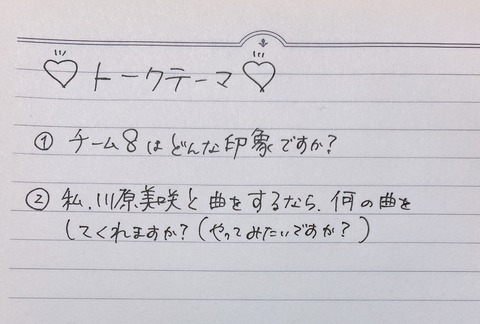 ♡トークテーマ♡
① チーム8はどんな印象ですか?
② 私、川原美咲と曲をするなら、何の曲を
してくれますか?(やってみたいですか?)